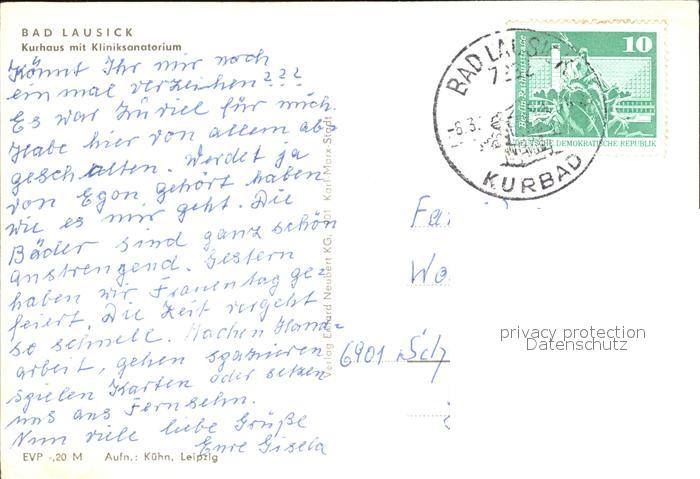 BAD LAUSICK
Kurhaus mit Kliniksanatorium
Könnt Ihr mir noch
ein mal verzeihen???
Es war zu viel für mich.
Habe hier von allem ab-
geschalten. Werdet ja
von Egon gehört haben
wie es mir geht. Die
Bäder sind ganz schön
anstrengend. Gestern
haben wir Frauentag ge-
feiert. Die Zeit vergeht
so schnell. Machen Hand-
arbeit, gehen spazieren
spielen Karten oder setzen
uns ans Fernsehn.
Nun viele liebe Grüße
Eure Gisela
EVP -,20 M Aufn.: Kühn, Leipzig
Verlag Erhard Neubert KG, Karl-Marx-Stadt
BAD LAUSICK
KURBAD
10
Berlin-Rathausstraße
DEUTSCHE DEMOKRATISCHE REPUBLIK
Fa
Wo
6901
privacy protection
Datenschutz